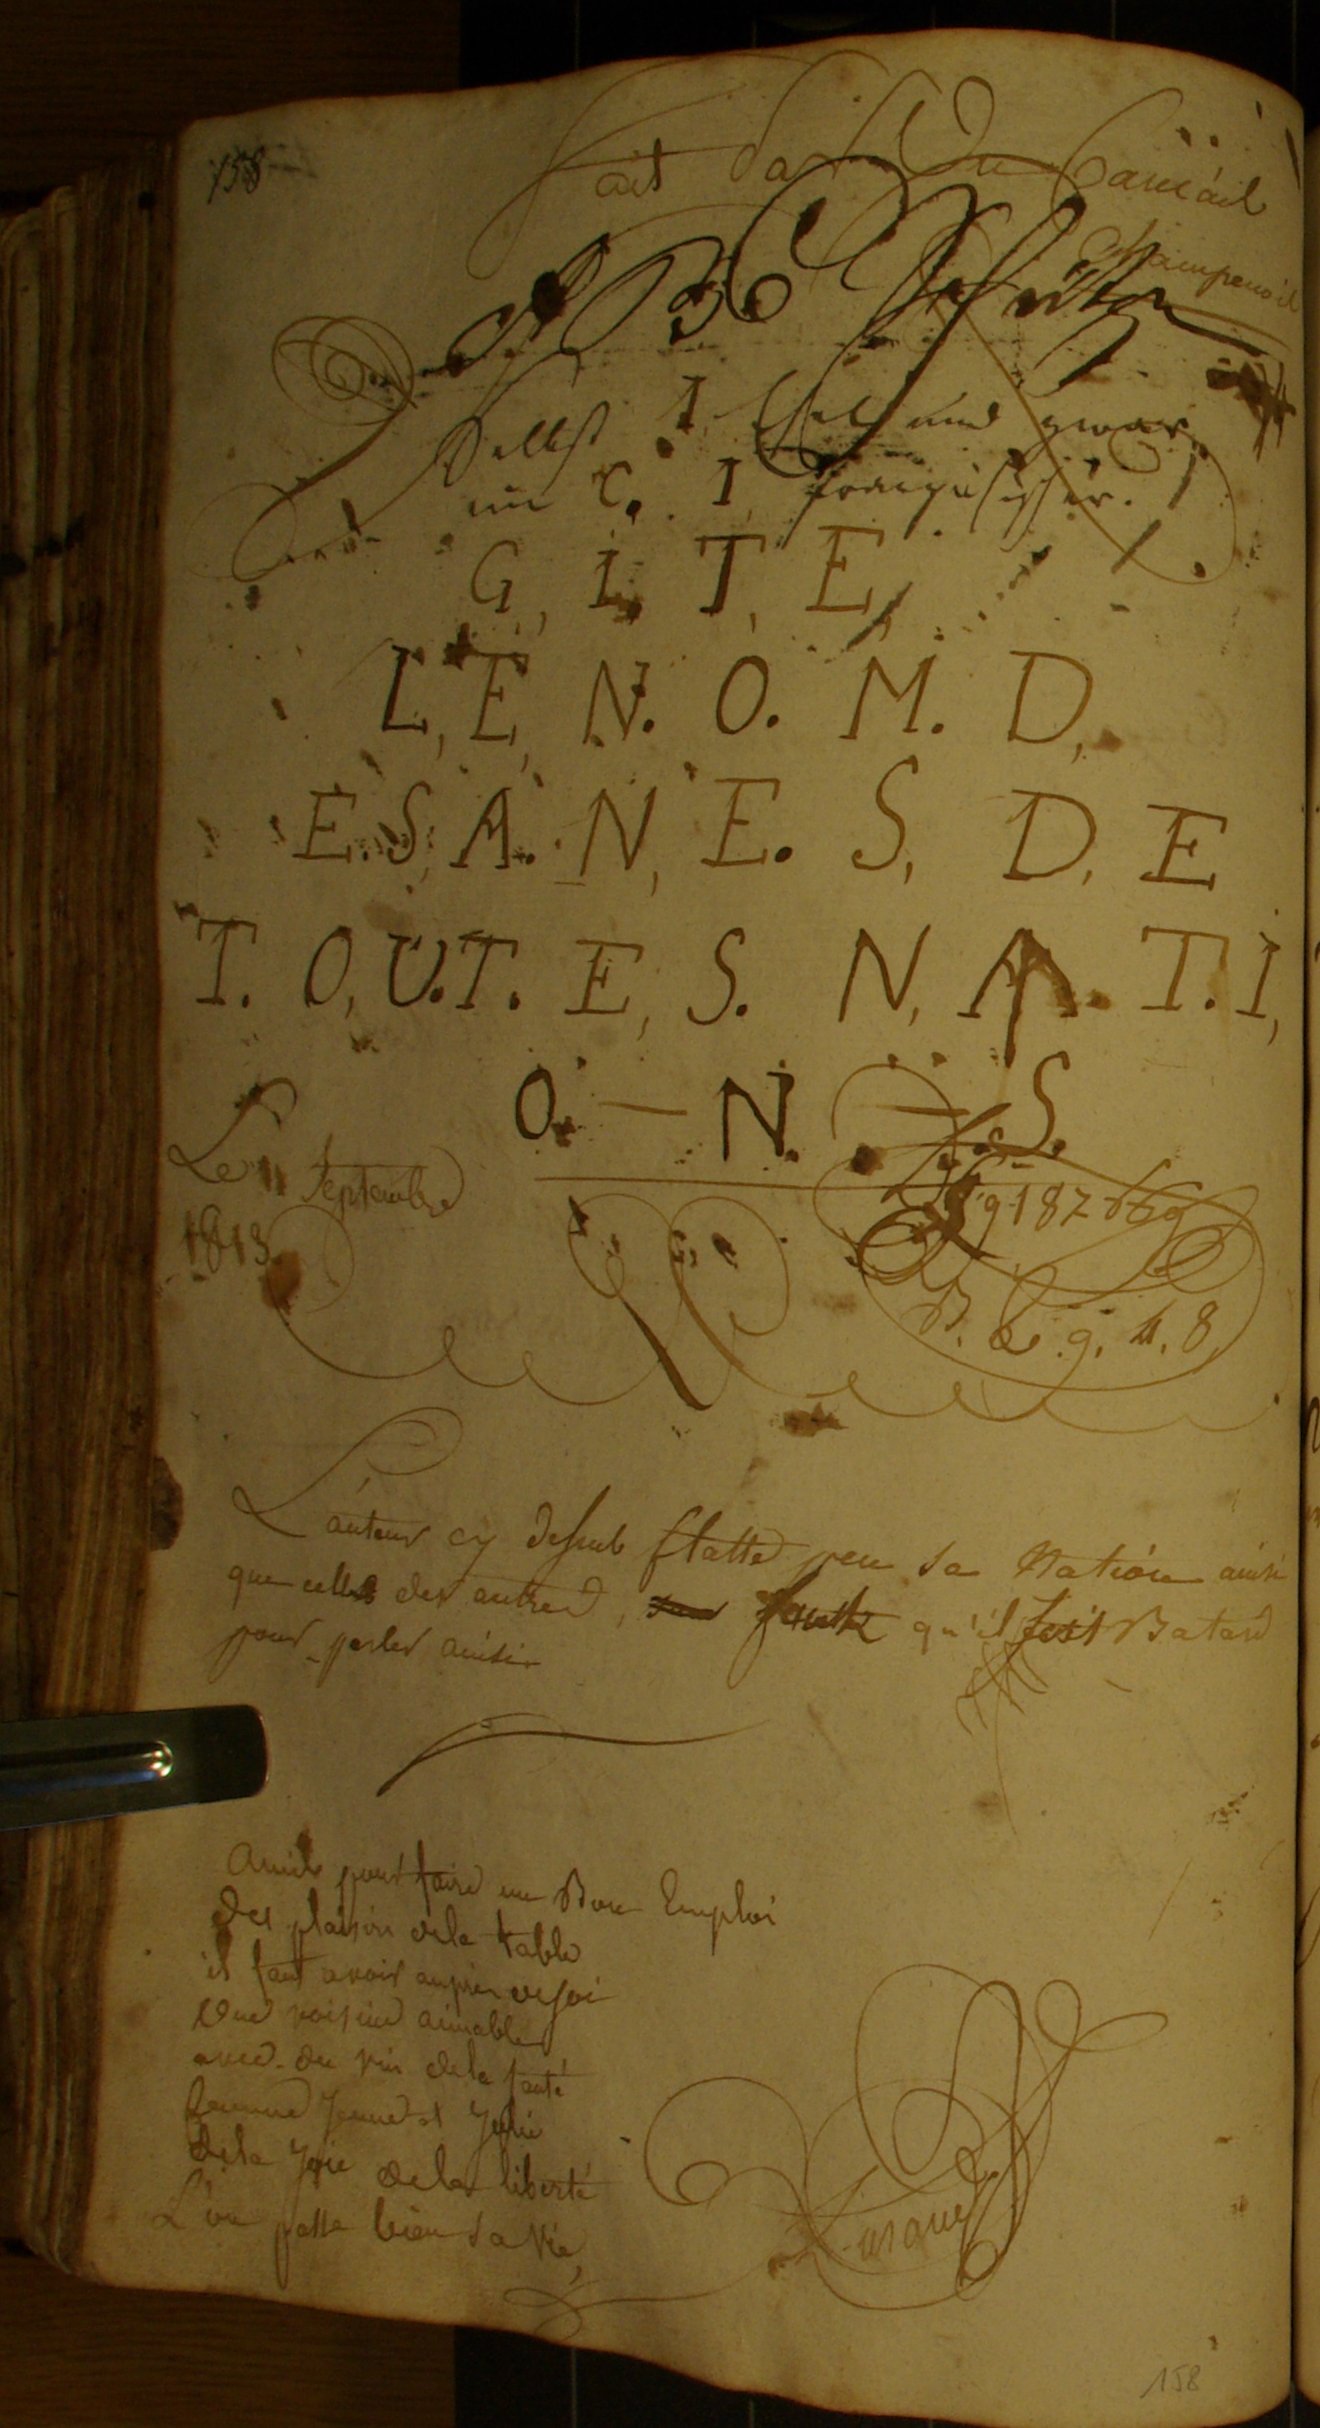 158
fait par Un
Selbst 1 Esel und zwar
ein französischer.
C. I
G, I. T, E,
L, E, N. O. M. D,
E. S, A. N, E. S, D, E
T. O, U. T. E, S. N, A. T. I,
O. — N. — S.
Le 11 Septembre
1813
B. 4. 8
L'auteur cy dessus flatte peu sa Nation ainsi
que celles des autres, faut qu'il soit Batard
pour parler ainsi
Amis pour faire un Bon Emploi
des plaisirs de la table
il faut avoir auprès de soi
Une voisine aimable
avec du vin de la santé
femme jeune et jolie
de la joie de la liberté
L'on passe bien sa vie,
158